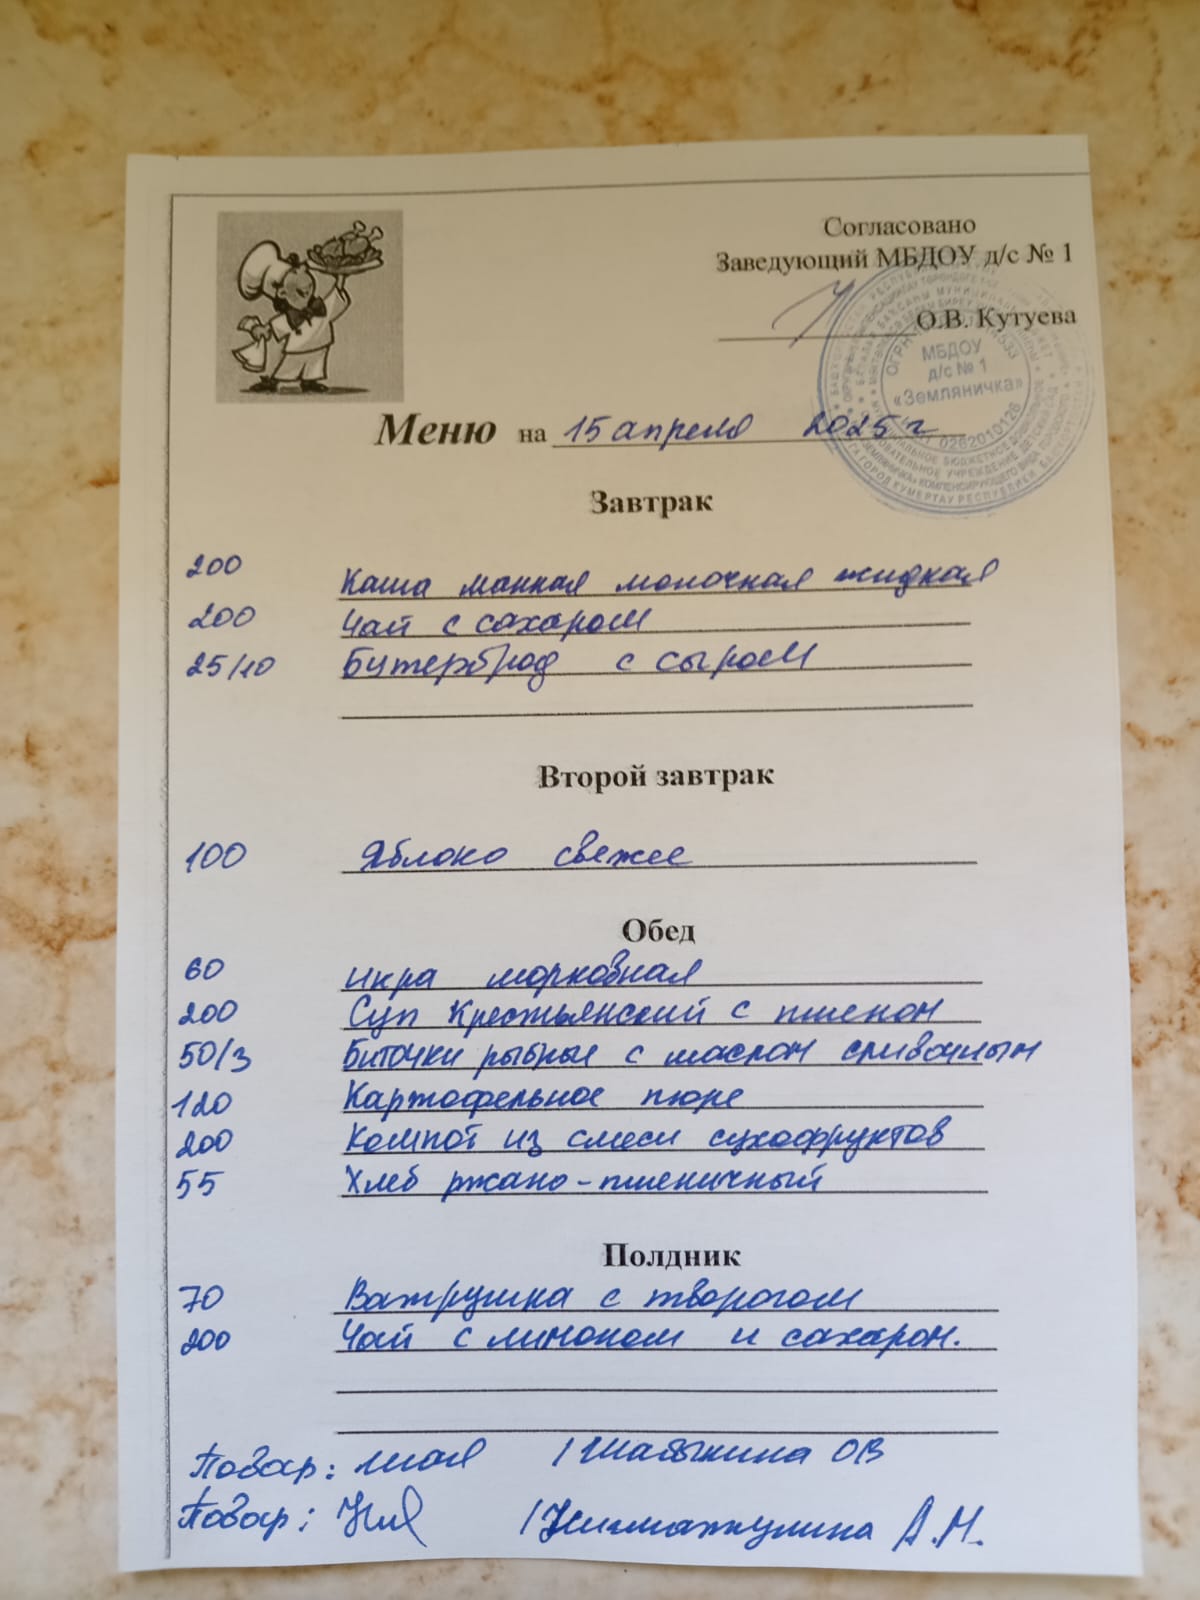 Согласовано
Заведующий МБДОУ д/с № 1
О.В. Кутуева
МБДОУ
д/с № 1
«Земляничка»
0262010126
Меню на 15 апреля 2025 г
Завтрак
200 Каша манная молочная жидкая
200 Чай с сахаром
25/10 Бутерброд с сыром
Второй завтрак
100 Яблоко свежее
Обед
60 Икра морковная
200 Суп Крестьянский с пшеном
50/3 Биточки рыбные с маслом сливочным
120 Картофельное пюре
200 Компот из смеси сухофруктов
55 Хлеб ржано-пшеничный
Полдник
70 Ватрушка с творогом
200 Чай с лимоном и сахаром.
Повар: / Шабынина ОВ
Повар: / Нигматкулина А.Н.